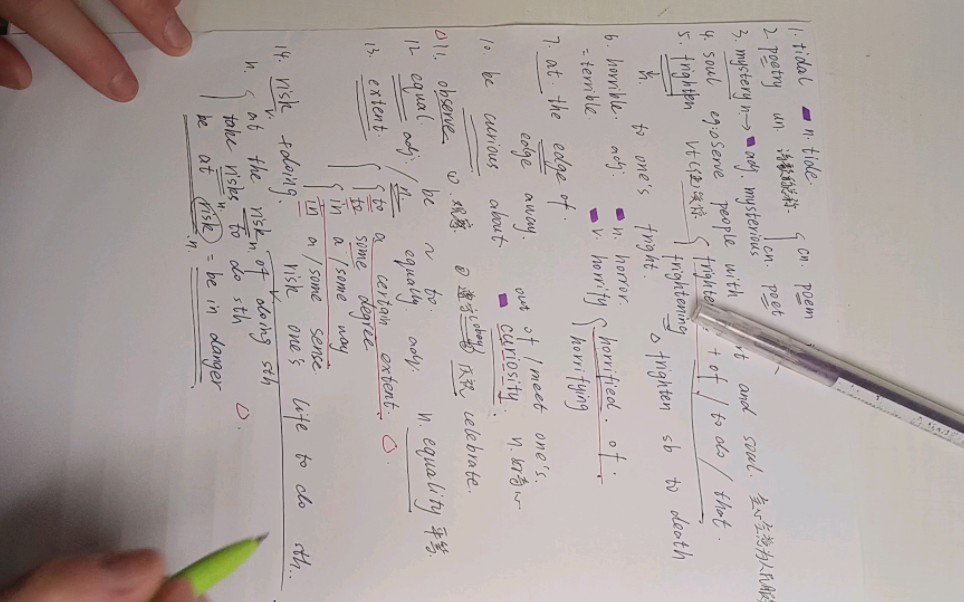 1. tidal n. tide.
2. poetry un. { cn. poem
cn. poet
3. mystery n→ adj mysterious
4. soul eg: serve people with and soul.
5. frighten vt { frightening
+ of / to do / that.
△ frighten sb to death
to one's fright.
6. horrible. adj. n. horror.
= terrible. v. horrify { horrified. of.
horrifying
7. at the edge of.
edge away.
10. be curious about out of / meet one's
curiosity. n. 好奇心
△11. observe ① 观察 ② 遵守 (obey) ③ 庆祝 celebrate.
12 equal. adj. / n. be ~ to.
equally adj. n. equality 平等.
13. extent. { to a certain extent.
to some degree
in a/some way
in a/some sense
14. risk v. +doing. risk one's life to do sth.
n. { at the risk of doing sth
take risks to do sth
be at risk = be in danger